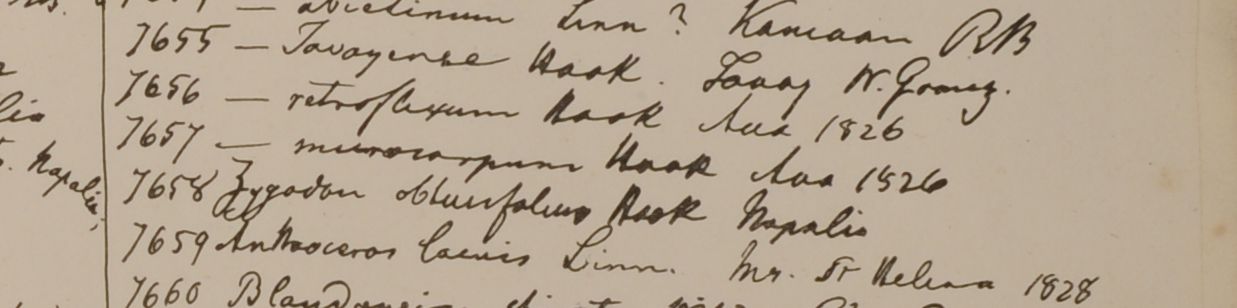 — abietinum Linn? Kamaon RB
7655 — Tavoyense Hook. Tavoy W. Gomez.
7656 — retroflexum Hook Ava 1826
7657 — microcarpum Hook Ava 1826
7658 Zygodon obtusifolius Hook Napalia
7659 Anthoceros laevis Linn. Ins. St Helena 1828
7660
Napalia